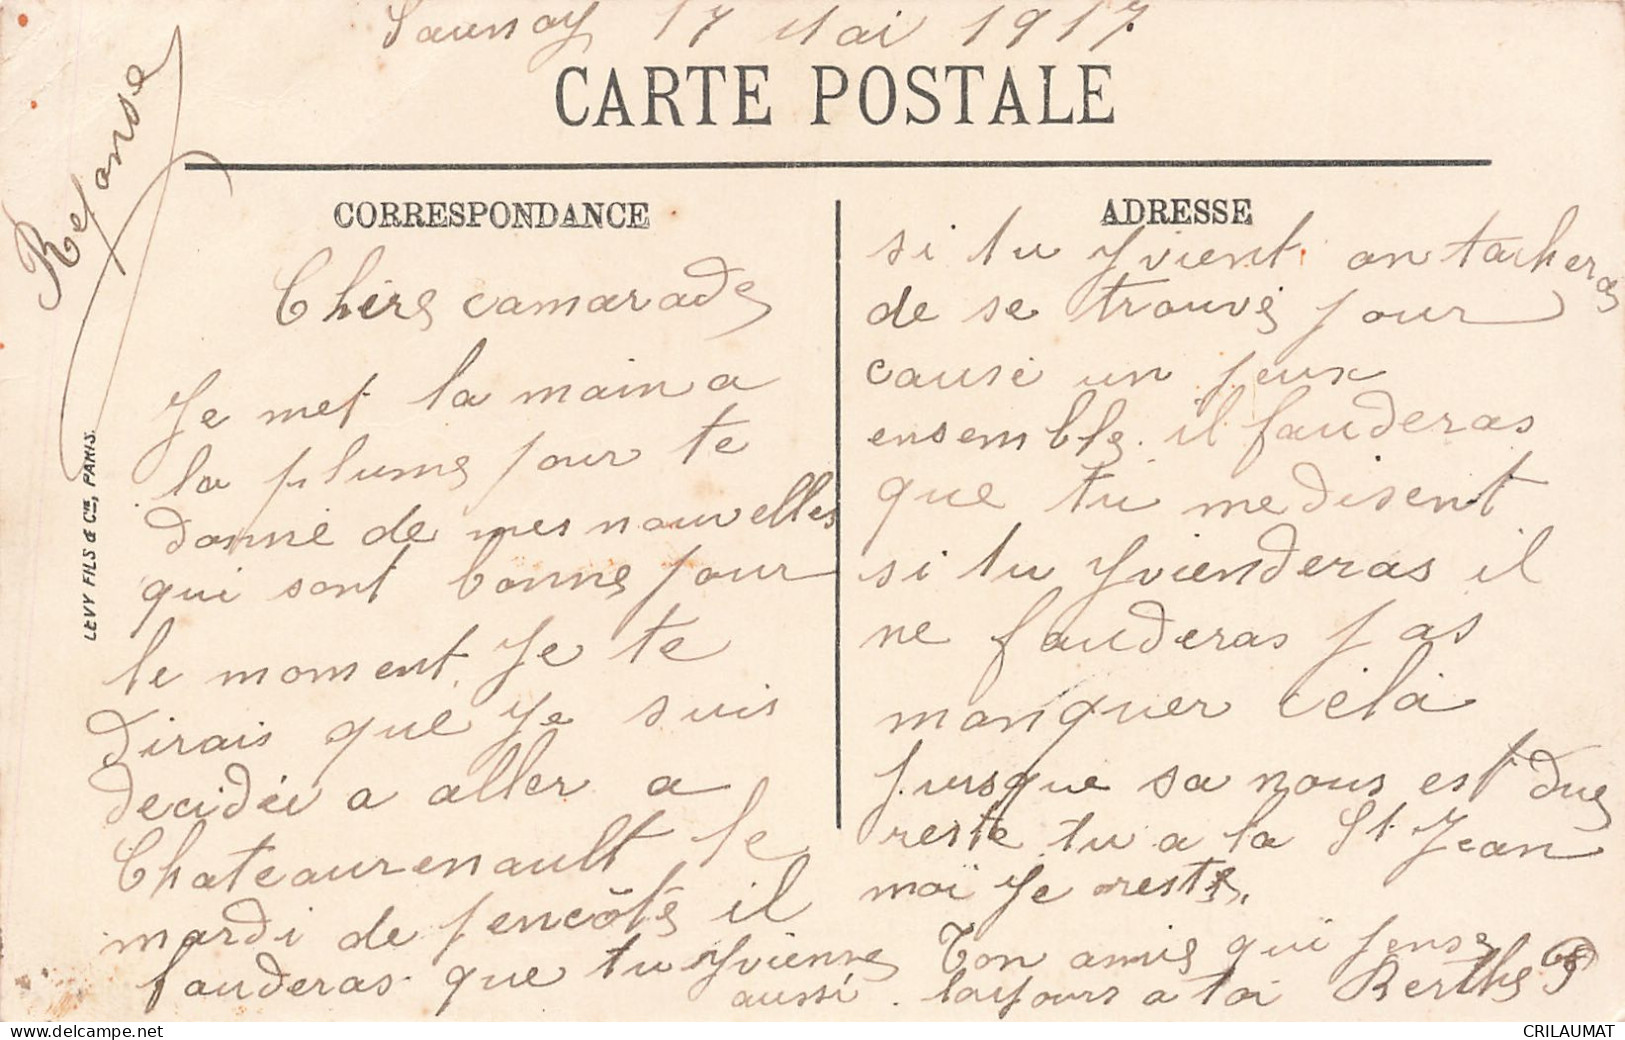 Saunay 17 Mai 1917
CARTE POSTALE
Reponse
CORRESPONDANCE
Chère camarade
Je met la main a
la plume pour te
donné de mes nouvelles
qui sont bonne pour
le moment. Je te
dirais que je suis
decidée a aller a
Chateaurenault le
mardi de pencôte il
fauderas que tu yvienne
aussi.
LEVY FILS & Cie, PARIS.
ADRESSE
si tu yvient on tacheras
de se trouvé pour
causé un peux
ensemble. il fauderas
que tu me disent
si tu yvienderas il
ne fauderas pas
manquer cela
pursque sa nous est due
reste tu a la St Jean
moï je reste,
Ton amie qui pense
toujours a toi Berthe G
CRILAUMAT